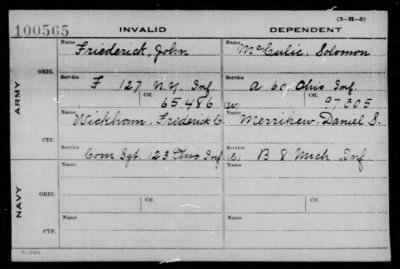 (3-21-5)
100565 INVALID DEPENDENT
Name Friederick, John Name McCulic, Solomon
ARMY
ORIG.
Service F 127 N.Y. Inf. Service A 60 Ohio Inf.
Ctf. 65486 Ctf. 97305
Name Wickham, Frederick C. Name Merrihew Daniel S.
CTF.
Service Com Sgt. 123 Ohio Inf. Service B 8 Mich Inf
NAVY
ORIG.
Name Name
Service Ctf. Service Ctf.
CTF.
Name Name